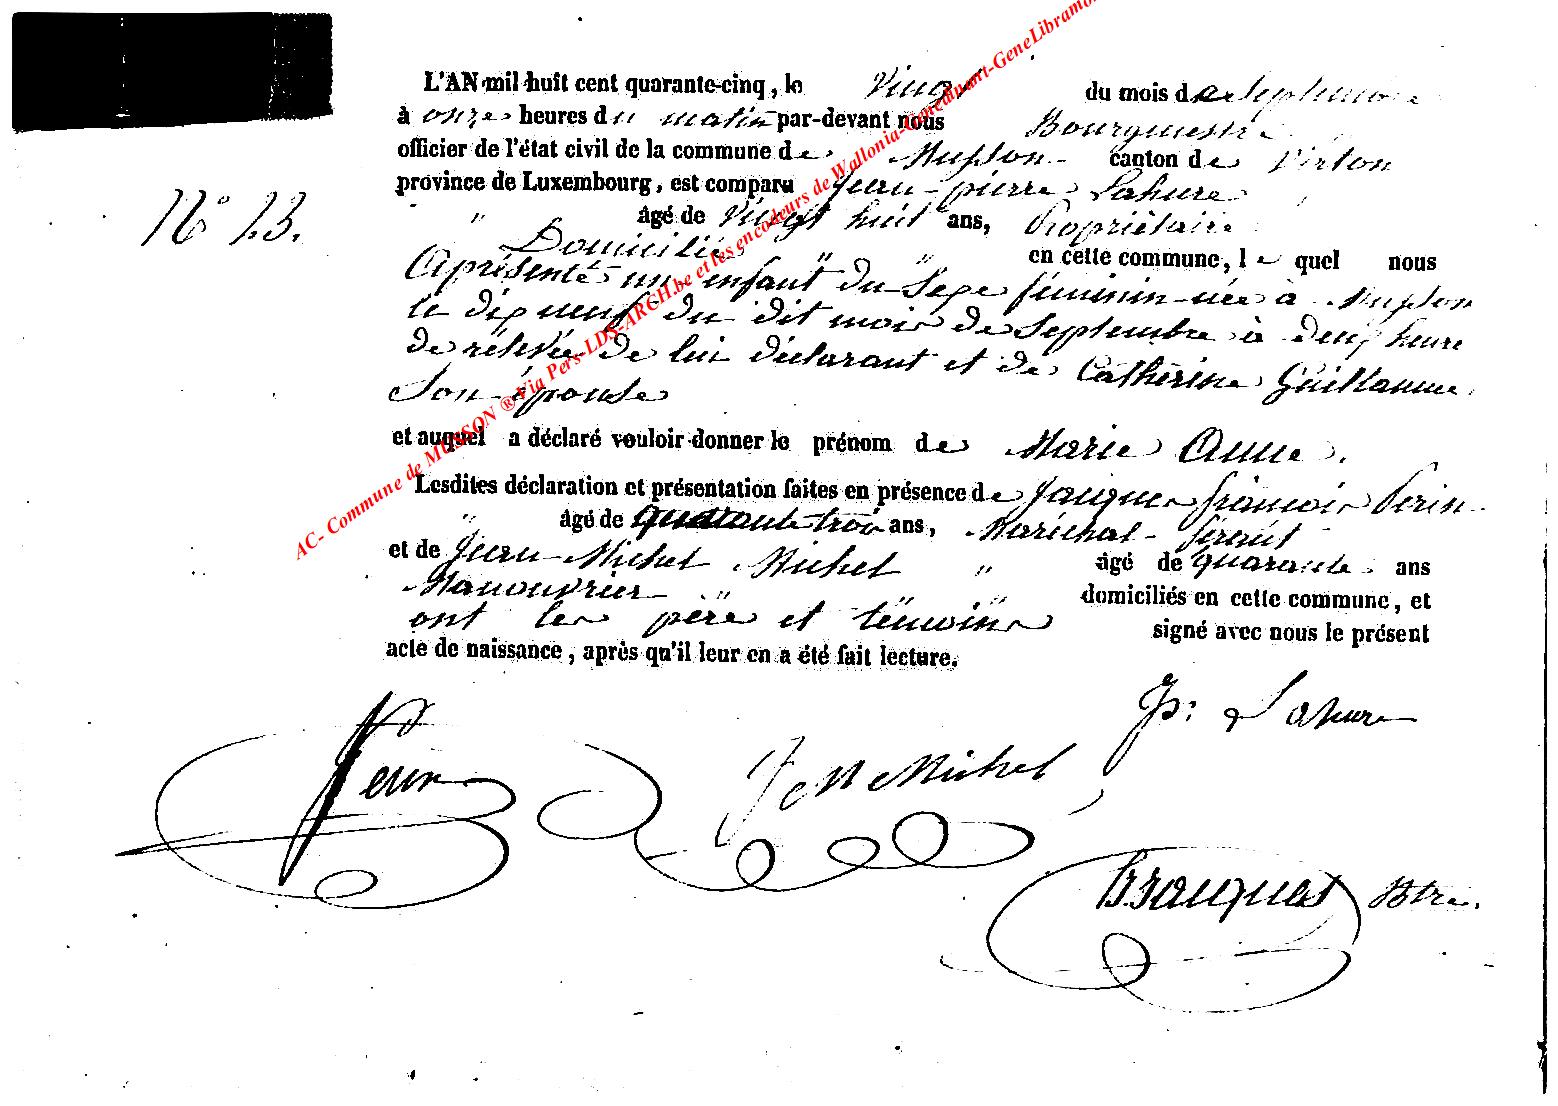 L'AN mil huit cent quarante-cinq, le Vingt du mois de Septembre
à onze heures du matin par-devant nous Bourgmestre
officier de l'état civil de la commune de Musson canton de Virton
province de Luxembourg, est comparu Jean-pierre Lahure
N° 23.
" âgé de Vingt huit ans, Propriétaire
Domicilié " " en cette commune, le quel nous
a présenté un enfant du Sexe féminin née à Musson
le dix neuf du dit mois de Septembre à deux heure
de rélevée de lui déclarant et de Cathérine Guillaume
Son épouse
et auquel a déclaré vouloir donner le prénom de Marie Anne.
Lesdites déclaration et présentation faites en présence de Jacques françois Perin
" âgé de quarante trois ans, Maréchal-ferant
et de Jean-Michel Michel " âgé de quarante ans
Manouvrier " " domiciliés en cette commune, et
ont les père et témoins signé avec nous le présent
acte de naissance, après qu'il leur en a été fait lecture.
JP: Lahure
Perin
J M Michel
Btre.
AC- Commune de MUSSON ® Via Pers-LDS-ARGH.be et les encodeurs de Wallonia-Genedinant-GeneLibramo